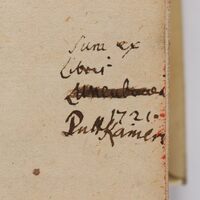 Sum ex
libris
1721.
Puttkamer